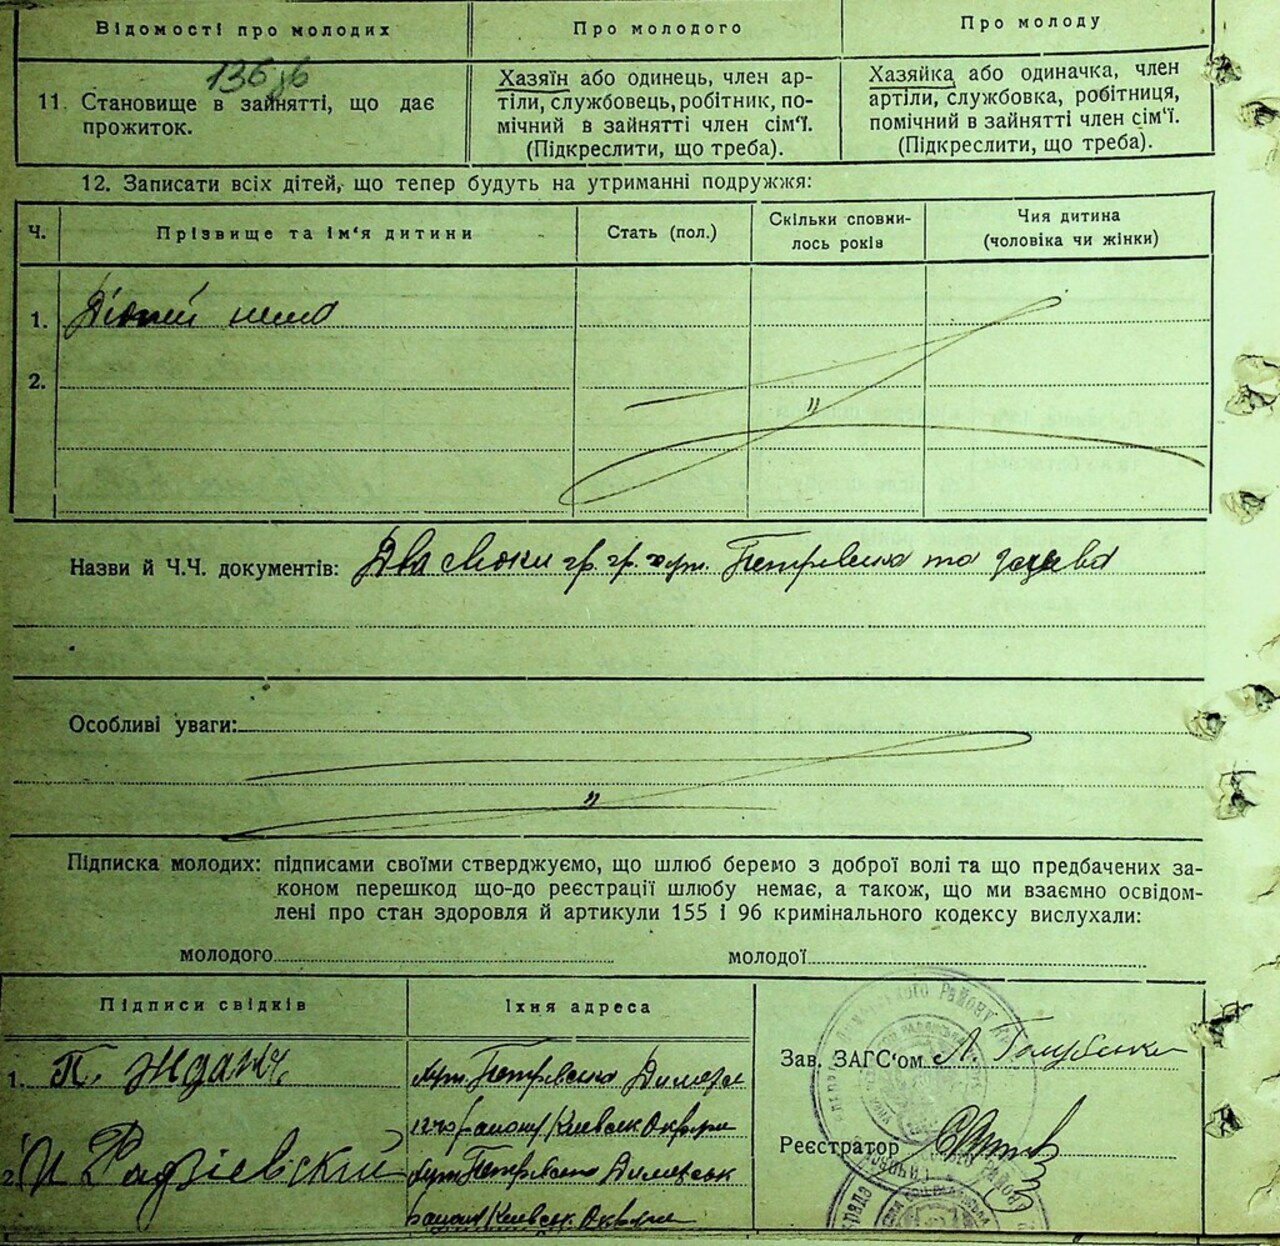 Відомості про молодих
Про молодого
Про молоду
136
11. Становище в зайнятті, що дає
прожиток.
Хазяїн або одинець, член ар-
тіли, службовець, робітник, по-
мічний в зайнятті член сім'ї.
(Підкреслити, що треба).
Хазяйка або одиначка, член
артіли, службовка, робітниця,
помічний в зайнятті член сім'ї.
(Підкреслити, що треба).
12. Записати всіх дітей, що тепер будуть на утриманні подружжя:
Ч.
Прізвище та ім'я дитини
Стать (пол.)
Скільки сповни-
лось років
Чия дитина
(чоловіка чи жінки)
1. Дітей нема
2.
"
Назви й Ч.Ч. документів: Два гр. гр. хут. Петрівська та
Особливі уваги:
"
Підписка молодих: підписами своїми стверджуємо, що шлюб беремо з доброї волі та що предбачених за-
коном перешкод що-до реєстрації шлюбу немає, а також, що ми взаємно освідом-
лені про стан здоровля й артикули 155 і 96 кримінального кодексу вислухали:
молодого
молодої
Підписи свідків
Їхня адреса
1. П. Ждан
хут. Петрівська Димерсь
району Київськ Округи
2 Радзієвський
хут. Петрівська Димерськ
району Київськ. Округи
Зав. ЗАГС'ом
Реєстратор